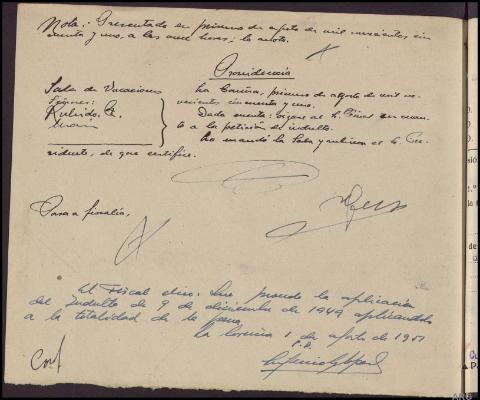 Nota: Presentado en primero de agosto de mil novecientos, cin
cuenta y uno, a las once horas; lo anoto.
Providencia
Sala de Vacaciones
Señores:
Rubido. G.
La Coruña, primero de agosto de mil no-
vecientos, cincuenta y uno.
Dada cuenta: óigase al S. Fiscal en cuan
to a la petición de indulto.
Lo mandó la Sala y rubrica el S. Pre
sidente, de que certifico.
Pasa a fiscalía,
El Fiscal dice: Que procede la aplicación
del Indulto de 9 de diciembre de 1949 aplicándolo
a la totalidad de la pena.
La Coruña 1 de agosto de 1951